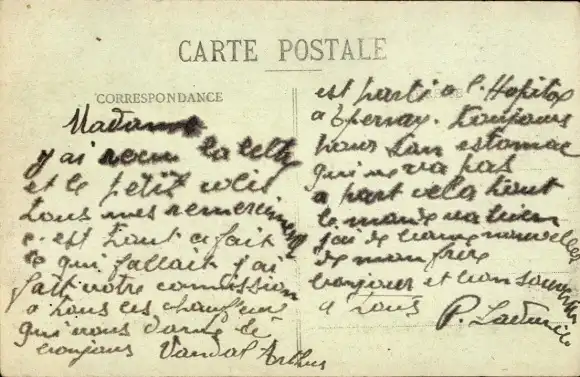 CARTE POSTALE
CORRESPONDANCE
Madame
j'ai recu la lettre
et le petit colis
tous mes remerciments
c est tout a fait
ce qui fallait j'ai
fait votre commission
a tous ces chauffeurs
qui vous donne de
bonjours Vandal Arthus
est parti a l'Hopital
a Epernay. toujours
pour son estomac
qui ne va pas
a part cela tout
le monde va bien
j'ai de bonne nouvelles
de mon frère
bonjour et bon souvenir
a tous
P.